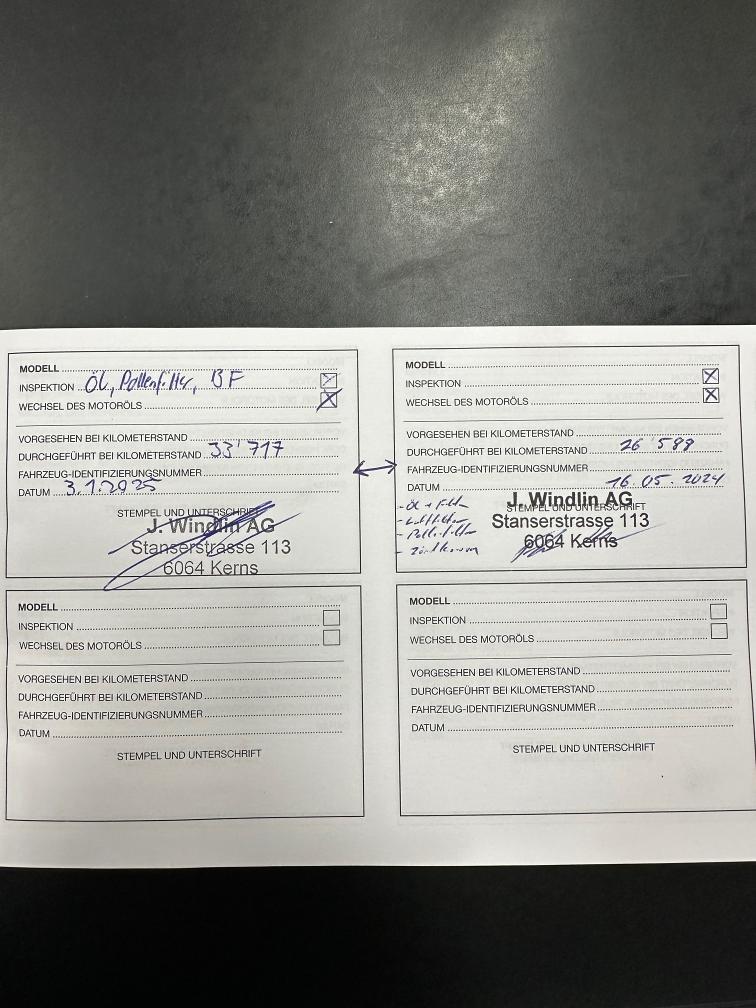 MODELL
INSPEKTION Öl, Pollenfilter, BF
WECHSEL DES MOTORÖLS
VORGESEHEN BEI KILOMETERSTAND
DURCHGEFÜHRT BEI KILOMETERSTAND 33'717
FAHRZEUG-IDENTIFIZIERUNGSNUMMER
DATUM 3.1.2025
STEMPEL UND UNTERSCHRIFT
J. Windlin AG
Stanserstrasse 113
6064 Kerns
MODELL
INSPEKTION
WECHSEL DES MOTORÖLS
VORGESEHEN BEI KILOMETERSTAND
DURCHGEFÜHRT BEI KILOMETERSTAND 26'589
FAHRZEUG-IDENTIFIZIERUNGSNUMMER
DATUM 16.05.2024
STEMPEL UND UNTERSCHRIFT
J. Windlin AG
Stanserstrasse 113
6064 Kerns
- Öl + Filter
- Luftfilter
- Pollenfilter
- Zündkerzen
MODELL
INSPEKTION
WECHSEL DES MOTORÖLS
VORGESEHEN BEI KILOMETERSTAND
DURCHGEFÜHRT BEI KILOMETERSTAND
FAHRZEUG-IDENTIFIZIERUNGSNUMMER
DATUM
STEMPEL UND UNTERSCHRIFT
MODELL
INSPEKTION
WECHSEL DES MOTORÖLS
VORGESEHEN BEI KILOMETERSTAND
DURCHGEFÜHRT BEI KILOMETERSTAND
FAHRZEUG-IDENTIFIZIERUNGSNUMMER
DATUM
STEMPEL UND UNTERSCHRIFT